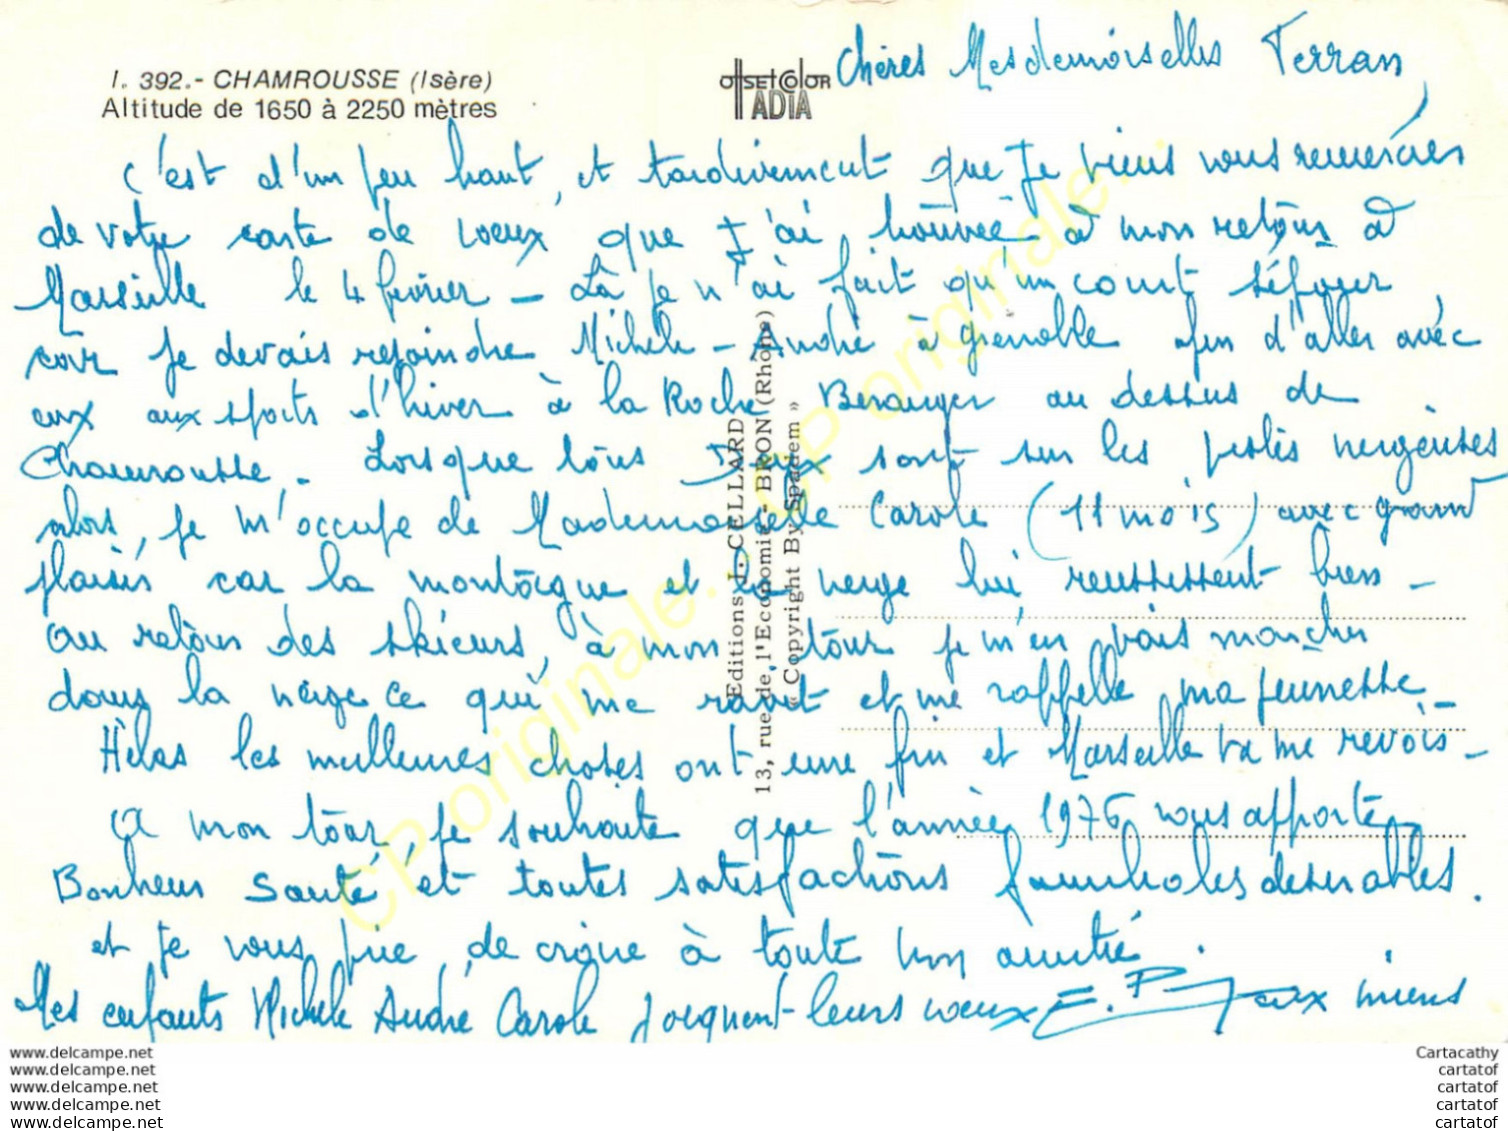 I. 392.- CHAMROUSSE (Isère)
Altitude de 1650 à 2250 mètres
OffSET COlOR
ADIA
Chères Mesdemoiselles Terran,
c'est d'un peu haut, et tardivement que je viens vous remercier
de votre carte de voeux que j'ai trouvée à mon retour à
Marseille le 4 février - Là je n'ai fait qu'un court séjour,
car je devais rejoindre Michèle - André à Grenoble afin d'aller avec
eux aux sports d'hiver à la Roche Beranger au dessus de
Chamrousse. Lorsque tous deux sont sur les pistes neigeuses
alors, je m'occupe de Mademoiselle Carole (11 mois) avec grand
plaisir car la montagne et la neige lui reussissent bien -
Au retour des skieurs, à mon tour je m'en vais marcher
dans la neige ce qui me ravit et me rappelle ma jeunesse -
Hélas les meilleures choses ont une fin et Marseille va me revoir -
A mon tour, je souhaite que l'année 1976 vous apporte
Bonheur Santé et toutes satisfactions familiales desirables.
et je vous prie de croire à toute mon amitié.
Mes enfants Michèle André Carole joignent leurs voeux aux miens
E. P.
Editions J. CELLARD
13, rue de l'Economie - BRON (Rhône)
« Copyright By Spadem »
CP originale. CP originale. CP originale.
www.delcampe.net
www.delcampe.net
www.delcampe.net
www.delcampe.net
www.delcampe.net
Cartacathy
cartatof
cartatof
cartatof
cartatof